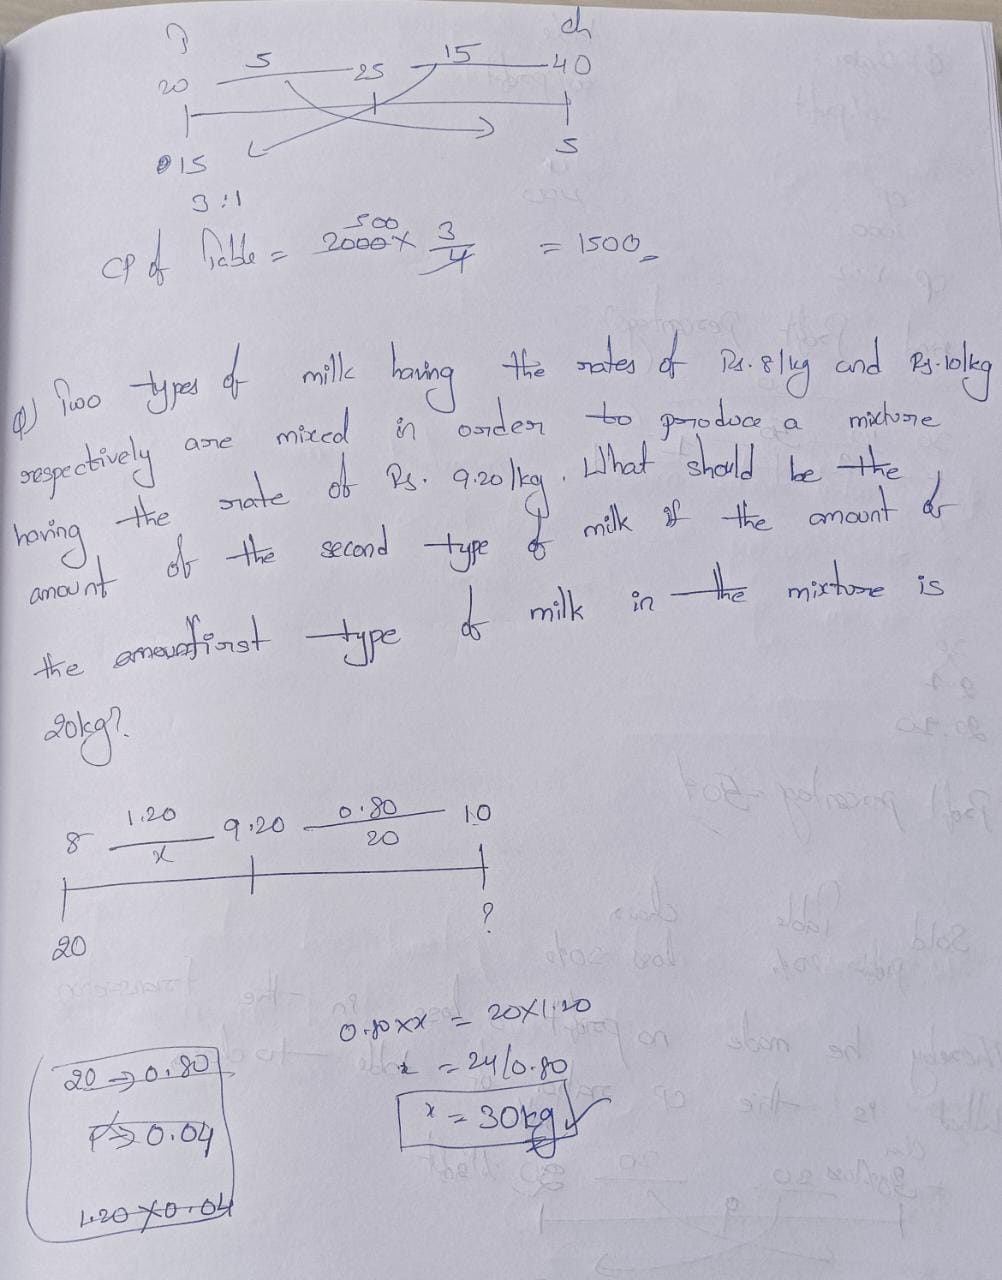 ch
20 5 25 15 40
15 5
3:1
CP of Table = 2000 × 3/4 = 1500
500
Q) Two types of milk having the rates of Rs. 8/kg and Rs. 10/kg
respectively are mixed in order to produce a mixture
having the rate of Rs. 9.20/kg. What should be the
amount of the second type of milk if the amount of
the first type of milk in the mixture is
20kg?
8 1.20 9.20 0.80 10
x 20
20 ?
0.80 × x = 20×1.20
x = 24/0.80
x = 30kg
20 → 0.80
→ 0.04
1.20 × 0.04